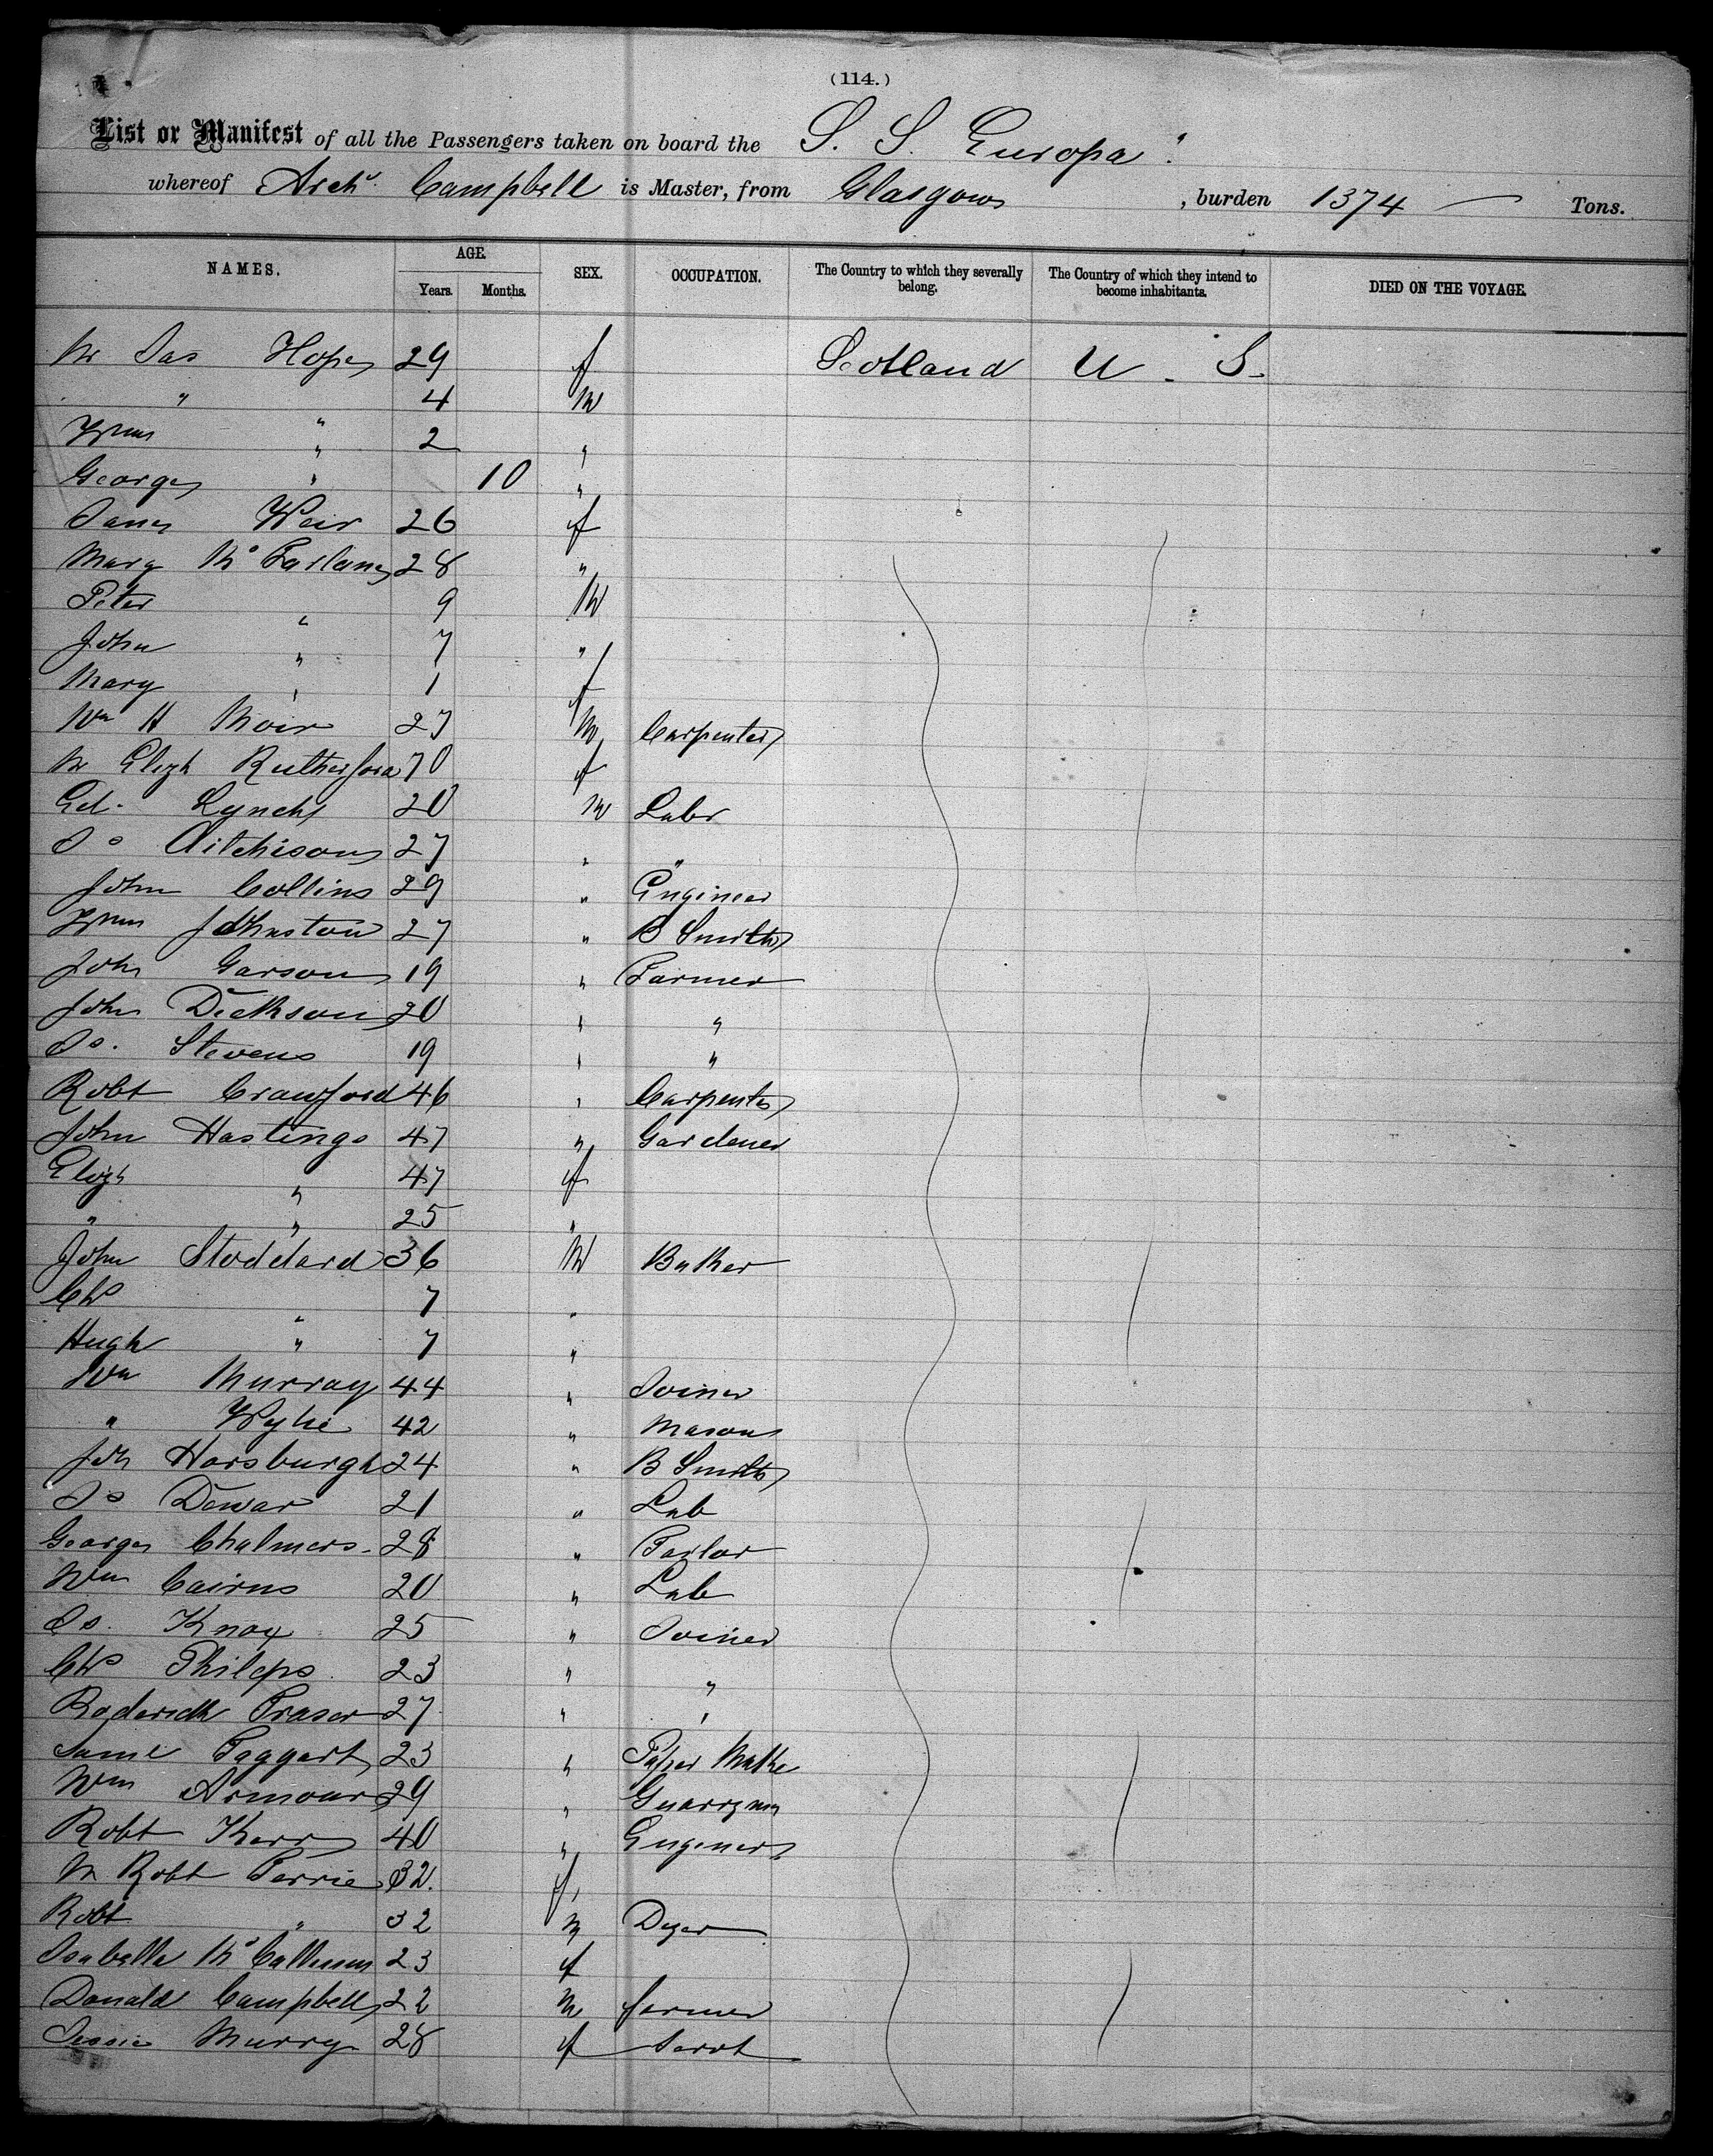 (114.)
List or Manifest of all the Passengers taken on board the S. S. Europa
whereof Archd. Campbell is Master, from Glasgow, burden 1374 Tons.
NAMES. AGE. SEX. OCCUPATION. The Country to which they severally belong. The Country of which they intend to become inhabitants. DIED ON THE VOYAGE.
Years. Months.
M Jas Hope 29 f Scotland U. S.
" 4 M
Wm " 2 "
George " 10 "
Jane Weir 26 f
Mary McFarlane 28 "
Peter " 9 M
John " 7 "
Mary " 1 f
Wm H Moir 27 M Carpenter
M Elizh Rutherford 70 f
Ed. Lynch 20 M Labr
Js Aitchison 27 " "
John Collins 29 " Engineer
Wm Johnston 27 " B Smith
John Garson 19 " Farmer
John Dickson 20 " "
Js. Stevens 19 " "
Robt Crawford 46 " Carpenter
John Hastings 47 " Gardener
Elizh " 47 f
" " 25 "
John Stoddard 36 M Baker
Chs " 7 "
Hugh " 7 "
Wm Murray 44 " Joiner
" Wylie 42 " Mason
Jn Horsburgh 24 " B Smith
Js Dewar 21 " Lab
George Chalmers 28 " Tailor
Wm Cairns 20 " Lab
Js. Knox 25 " Joiner
Chs Philips 23 " "
Roderick Fraser 27 " "
Saml Taggart 23 " Paper Make
Wm Armour 29 " Quarryman
Robt Kerr 40 " Engineer
M Robt Perrie 32 f
Robt " 32 M Dyer
Isabella McCallum 23 f
Donald Campbell 22 M farmer
Jessie Murry 28 f Servt